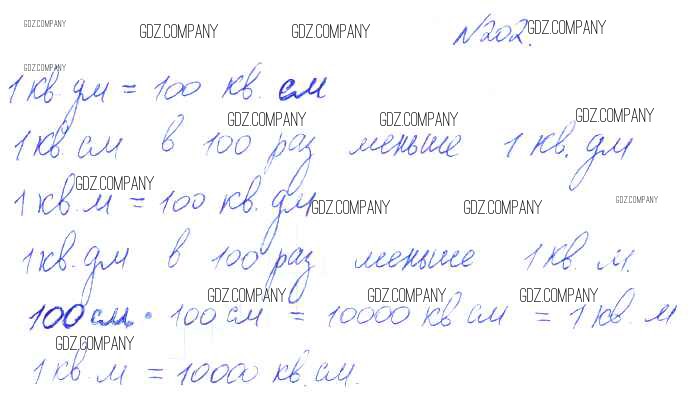 GDZ.COMPANY GDZ.COMPANY GDZ.COMPANY №202. GDZ.COMPANY
GDZ.COMPANY
1 кв. дм = 100 кв. см
GDZ.COMPANY GDZ.COMPANY GDZ.COMPANY
1 кв. см в 100 раз меньше 1 кв. дм
GDZ.COMPANY GDZ.COMPANY GDZ.COMPANY GDZ.COMPANY
1 кв. м = 100 кв. дм
1 кв. дм в 100 раз меньше 1 кв. м.
GDZ.COMPANY GDZ.COMPANY GDZ.COMPANY
100 см · 100 см = 10000 кв см = 1 кв. м
GDZ.COMPANY
1 кв. м = 10000 кв. см.